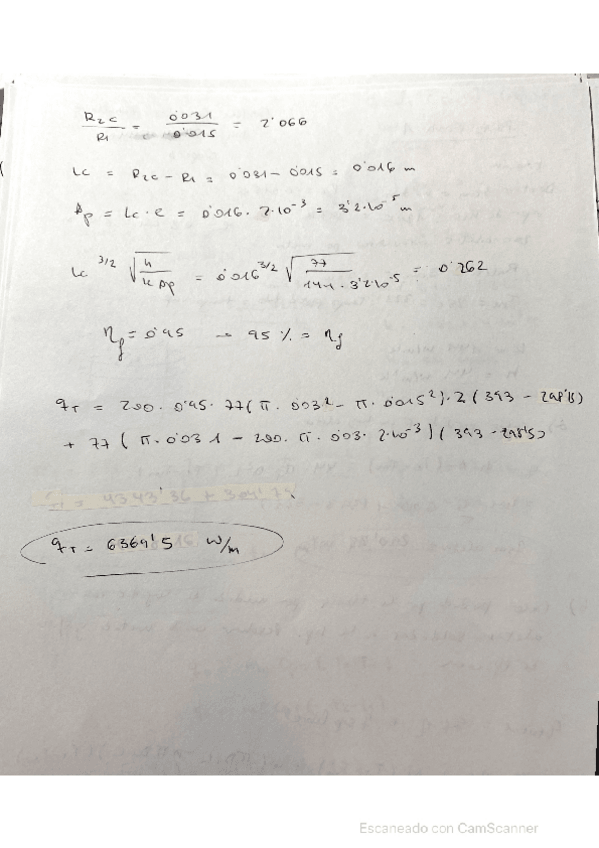 R2c/R1 = 0'031/0'015 = 2'066
Lc = R2c - R1 = 0'031 - 0'015 = 0'016 m
Ap = Lc · e = 0'016 · 2·10^-3 = 3'2·10^-5 m
Lc^3/2 √(h/(k Ap)) = 0'016^3/2 √(77/(144 · 3'2·10^-5)) = 0'262
ηf = 0'95 → 95 % = ηf
qT = 200 · 0'95 · 77(π · 0'03² - π · 0'015²) · 2 (393 - 298'15)
+ 77 (π · 0'03 1 - 200 · π · 0'03 · 2·10^-3) (393 - 298'15)
qT = 6369'5 W/m
Escaneado con CamScanner